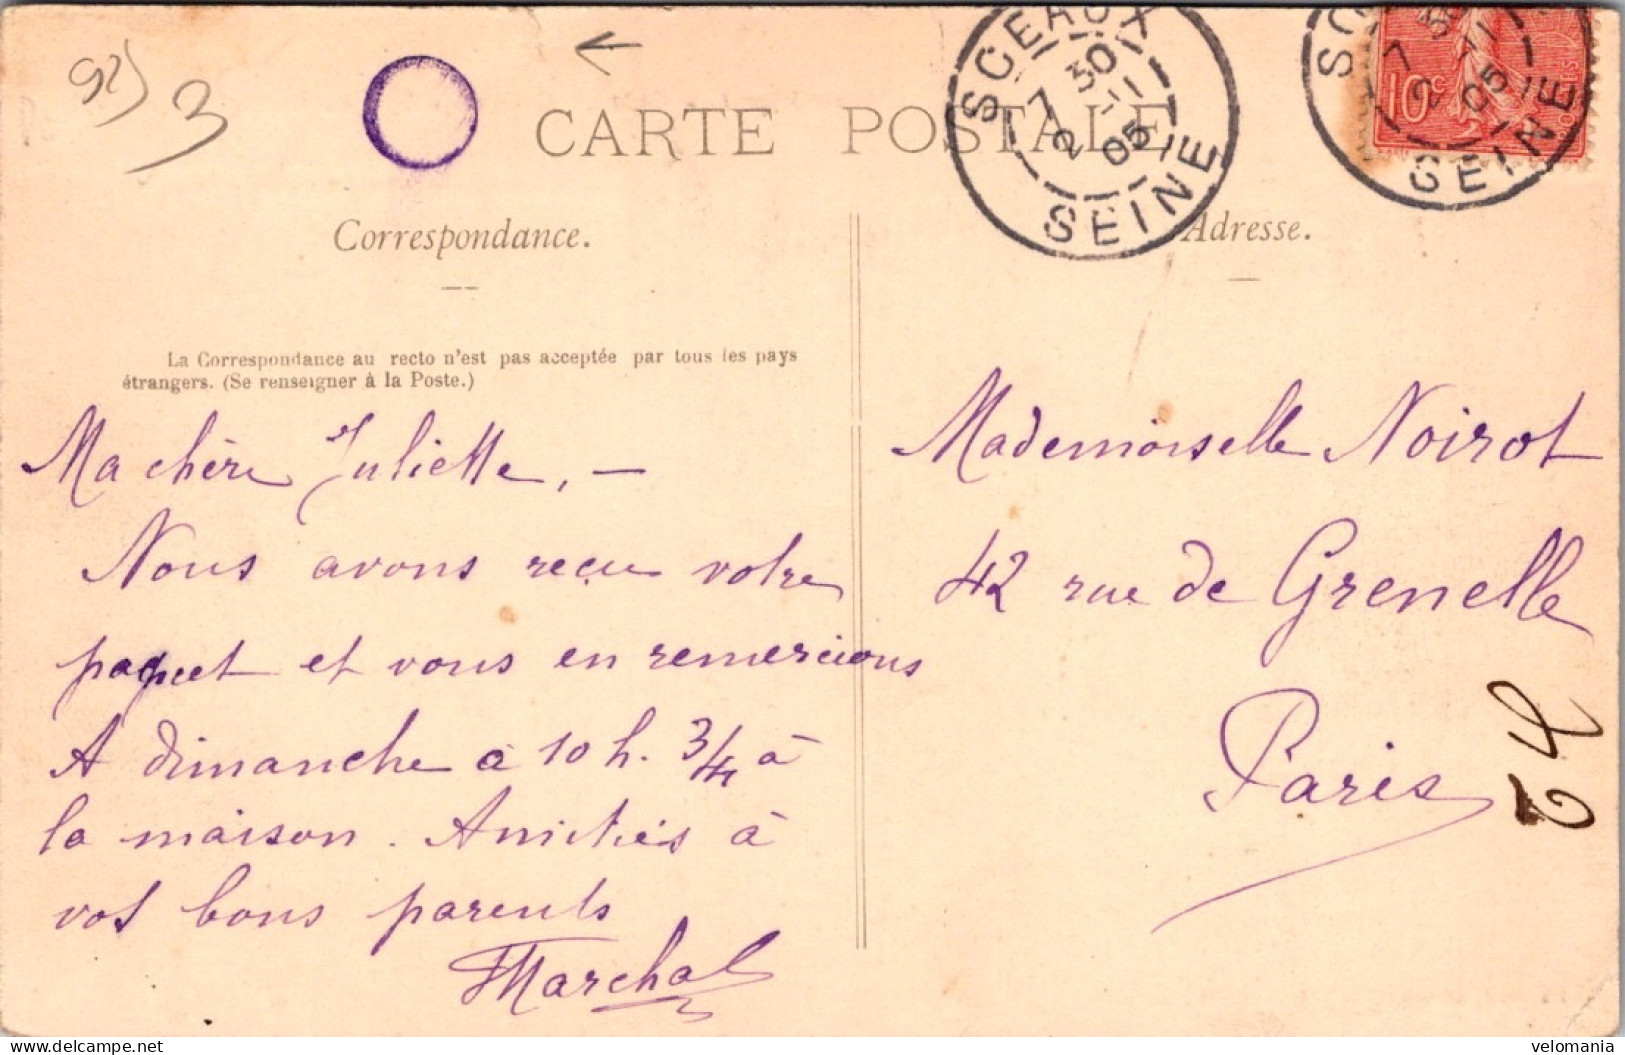 92)
3
CARTE POSTALE
SCEAUX
7 30
2 -11
05
SEINE
7
2 -11
05
SEINE
10c
Correspondance.
Adresse.
La Correspondance au recto n'est pas acceptée par tous les pays
étrangers. (Se renseigner à la Poste.)
Ma chère Juliette, —
Nous avons reçu votre
paquet et vous en remercions
A dimanche à 10 h. 3/4 à
la maison. Amitiés à
vos bons parents
Marchal
Mademoiselle Noirot
42 rue de Grenelle
Paris
www.delcampe.net
velomania